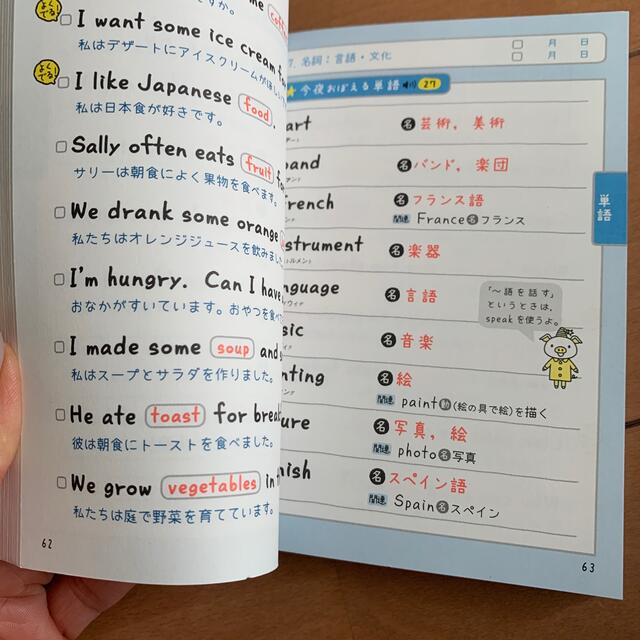 me
よく でる
I want some ice cream
私はデザートにアイスクリームが
よく でる
I like Japanese food.
私は日本食が好きです。
Sally often eats fruit
サリーは朝食によく果物を食べます。
We drank some orange
私たちはオレンジジュースを飲みま
I'm hungry. Can I have
おなかがすいています。おやつを食べ
I made some soup and
私はスープとサラダを作りました。
He ate toast for brea
彼は朝食にトーストを食べました。
We grow vegetables in
私たちは庭で野菜を育てています。
62
7. 名詞：言語・文化
月 日
月 日
今夜おぼえる単語 27
art 名 芸術, 美術
band 名 バンド, 楽団
French 名 フランス語
関連 France 名 フランス
strument 名 楽器
nguage 名 言語
sic 名 音楽
nting 名 絵
関連 paint 動 (絵の具で絵)を描く
ure 名 写真, 絵
関連 photo 名 写真
nish 名 スペイン語
関連 Spain 名 スペイン
「～語を話す」
というときは,
speakを使うよ。
単語
63